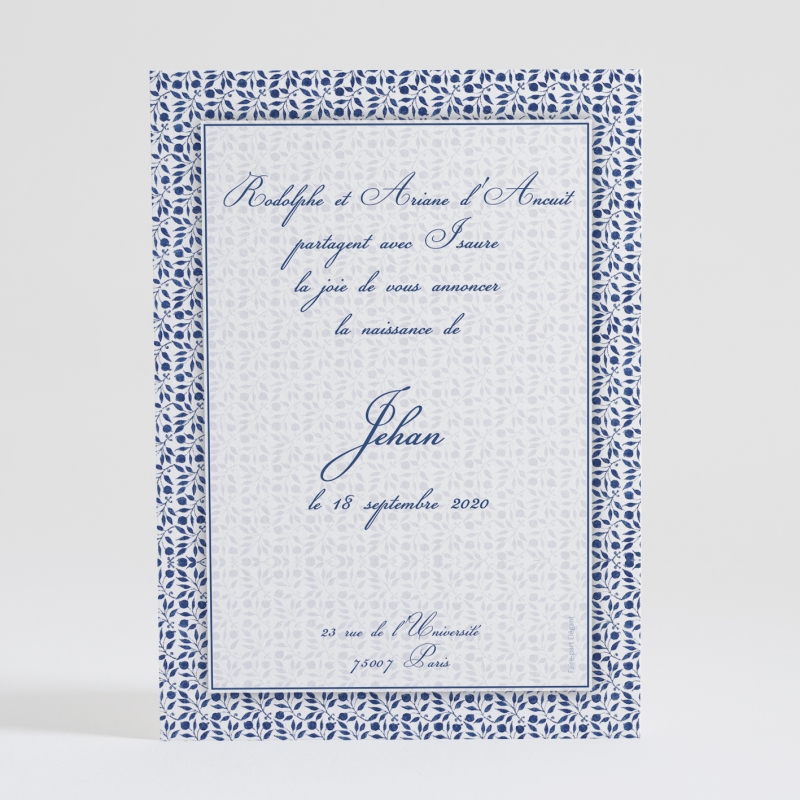 Rodolphe et Ariane d'Ancuit
partagent avec Isaure
la joie de vous annoncer
la naissance de
Jehan
le 18 septembre 2020
23 rue de l'Université
75007 Paris
Faire-part Elegant